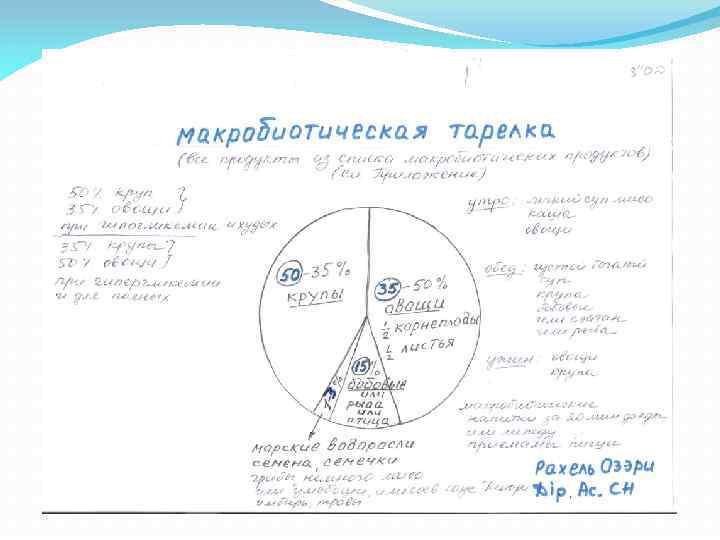 3"02
макробиотическая тарелка
(все продукты из списка макробиотических продуктов)
(см Приложение)
50% круп }
35% овощи }
при гипогликемии и худых
35% крупы }
50% овощи }
при гипергликемии
и для полных
50-35%
крупы
35-50%
овощи
1/2 корнеплоды
1/2 листья
15%
бобовые
или
рыба
или
птица
марские водоросли
семена, семечки
грибы немного мисо
имбирь, травы
утро: лёгкий суп мисо
каша
овощи
обед: густой богатый
суп
крупа
бобовые
или сейтан
или рыба
ужин: овощи
крупа
макробиотические
напитки за 20 мин до еды
или между
приемами пищи
Рахель Озэри
Dip. Ac. CH